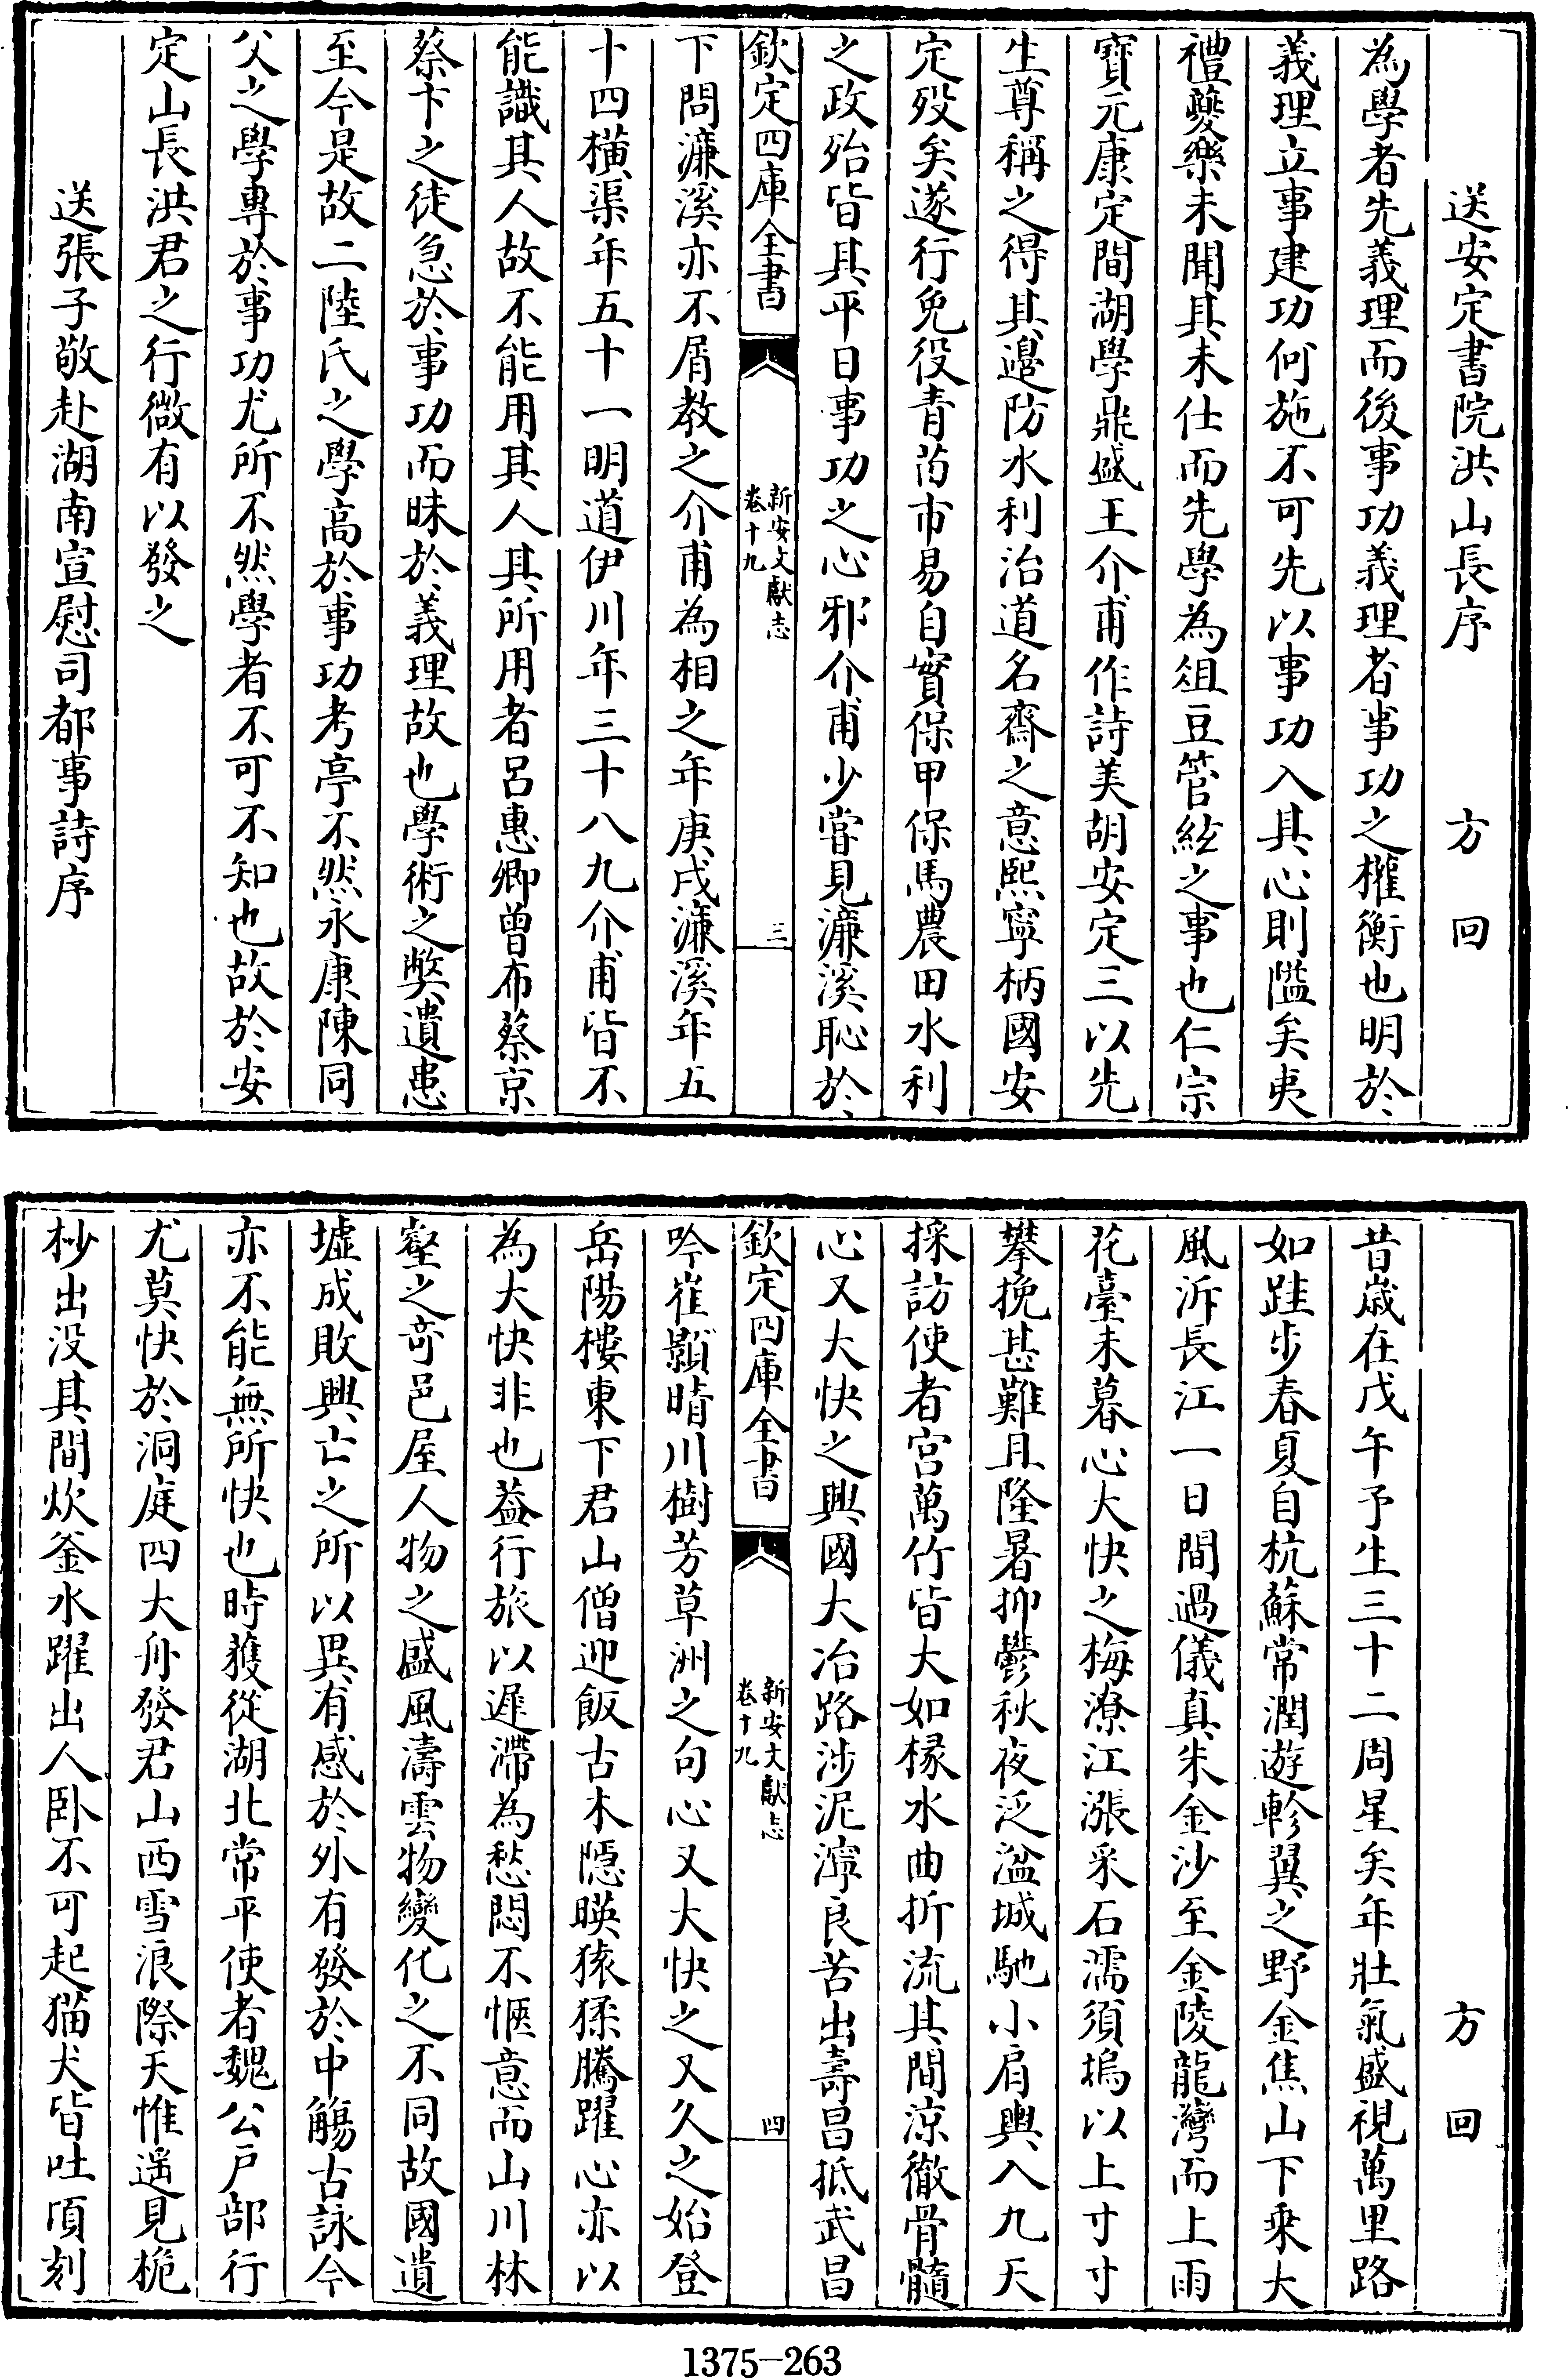 送安定書院洪山長序　方回
為學者先義理而後事功義理者事功之權衡也明於
義理立事建功何施不可先以事功入其心則隘矣夷
禮夔樂未聞其未仕而先學為俎豆管絃之事也仁宗
寳元康定間湖學鼎盛王介甫作詩美胡安定三以先
生尊稱之得其邊防水利治道名齋之意熙寧柄國安
定歿矣遂行免役青苗市易自實保甲保馬農田水利
之政殆皆其平日事功之心邪介甫少嘗見濂溪恥於
欽定四庫全書
新安文獻志
卷十九
三
下問濂溪亦不屑教之介甫為相之年庚戌濂溪年五
十四横渠年五十一明道伊川年三十八九介甫皆不
能識其人故不能用其人其所用者呂惠卿曾布蔡京
蔡卞之徒急於事功而昧於義理故也學術之弊遺患
至今是故二陸氏之學高於事功考亭不然永康陳同
父之學專於事功尤所不然學者不可不知也故於安
定山長洪君之行微有以發之
送張子敬赴湖南宣慰司都事詩序
方回
昔歳在戊午予生三十二周星矣年壯氣盛視萬里路
如跬步春夏自杭蘇常潤遊軫翼之野金焦山下乗大
風泝長江一日間過儀真朱金沙至金陵龍灣而上雨
花臺未暮心大快之梅潦江漲采石濡須塢以上寸寸
攀挽甚難且隆暑抑鬱秋夜泛湓城馳小肩輿入九天
採訪使者宮萬竹皆大如椽水曲折流其間涼徹骨髓
心又大快之興國大冶路涉泥濘良苦出壽昌抵武昌
欽定四庫全書
新安文獻志
卷十九
四
吟崔顥晴川樹芳草洲之句心又大快之又久之始登
岳陽樓東下君山僧迎飯古木隱暎猿猱騰躍心亦以
為大快非也葢行旅以遲滯為愁悶不愜意而山川林
壑之奇邑屋人物之盛風濤雲物變化之不同故國遺
墟成敗興亡之所以異有感於外有發於中觴古詠今
亦不能無所快也時獲從湖北常平使者魏公户部行
尤莫快於洞庭四大舟發君山西雪浪際天惟遥見桅
杪出没其間炊釜水躍出人卧不可起猫犬皆吐頃刻
1375-263